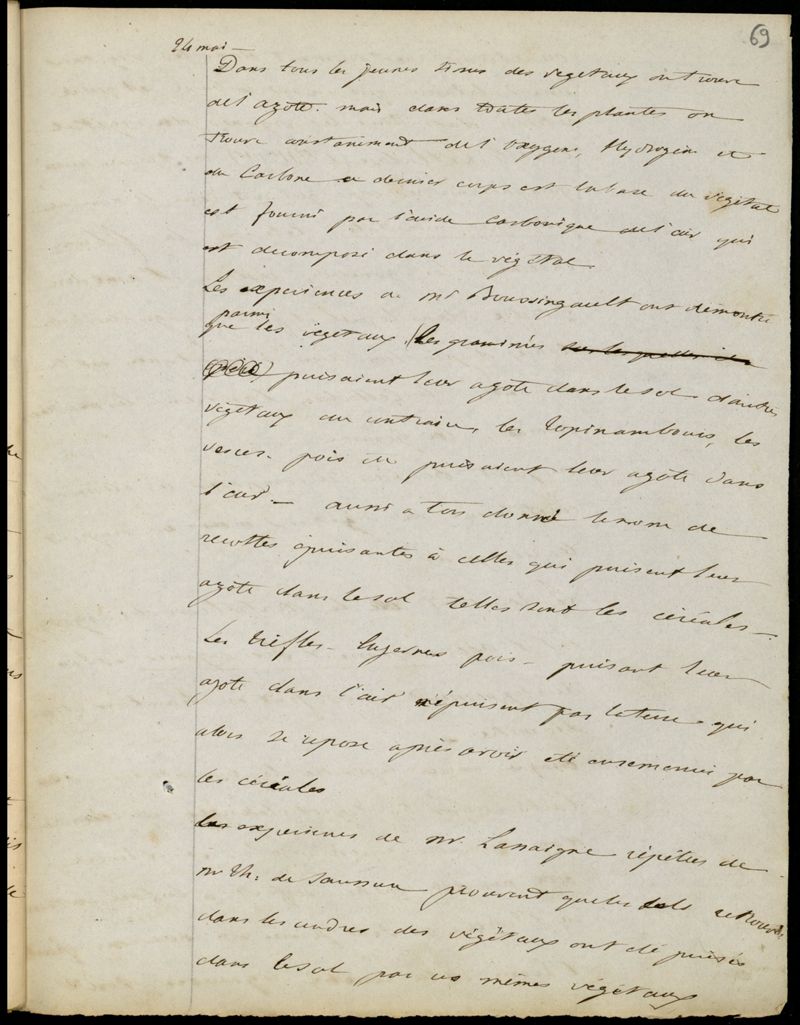 69
24 mai —
Dans tous les jeunes tissus des vegetaux on trouve
de l'azote. mais dans toutes les plantes on
trouve constamment de l'oxygene, Hydrogene et
du Carbone ce dernier corps est la base du végétal
est fourni par l'acide carbonique de l'air qui
est decomposé dans le végétal
Les experiences de Mr Boussingault ont démontré
parmi
que les végetaux (les graminés
puisaient leur azote dans le sol d'autres
végétaux au contraire, les topinambours, les
vesces. pois &c puisaient leur azote dans
l'air. — aussi a t'on donné le nom de
recoltes épuisantes à celles qui puisent leur
azote dans le sol telles sont les céréales —.
Les trèfles - luzernes pois - puisant leur
azote dans l'air n'épuisent pas la terre qui
alors se repose après avoir été ensemencée par
les céréales
Les experiences de Mr. Lassaigne répétées de
Mr Th. de Saussure prouvent que les sels retrouvés
dans les cendres des végétaux ont été puisés
dans le sol par ces mêmes végétaux